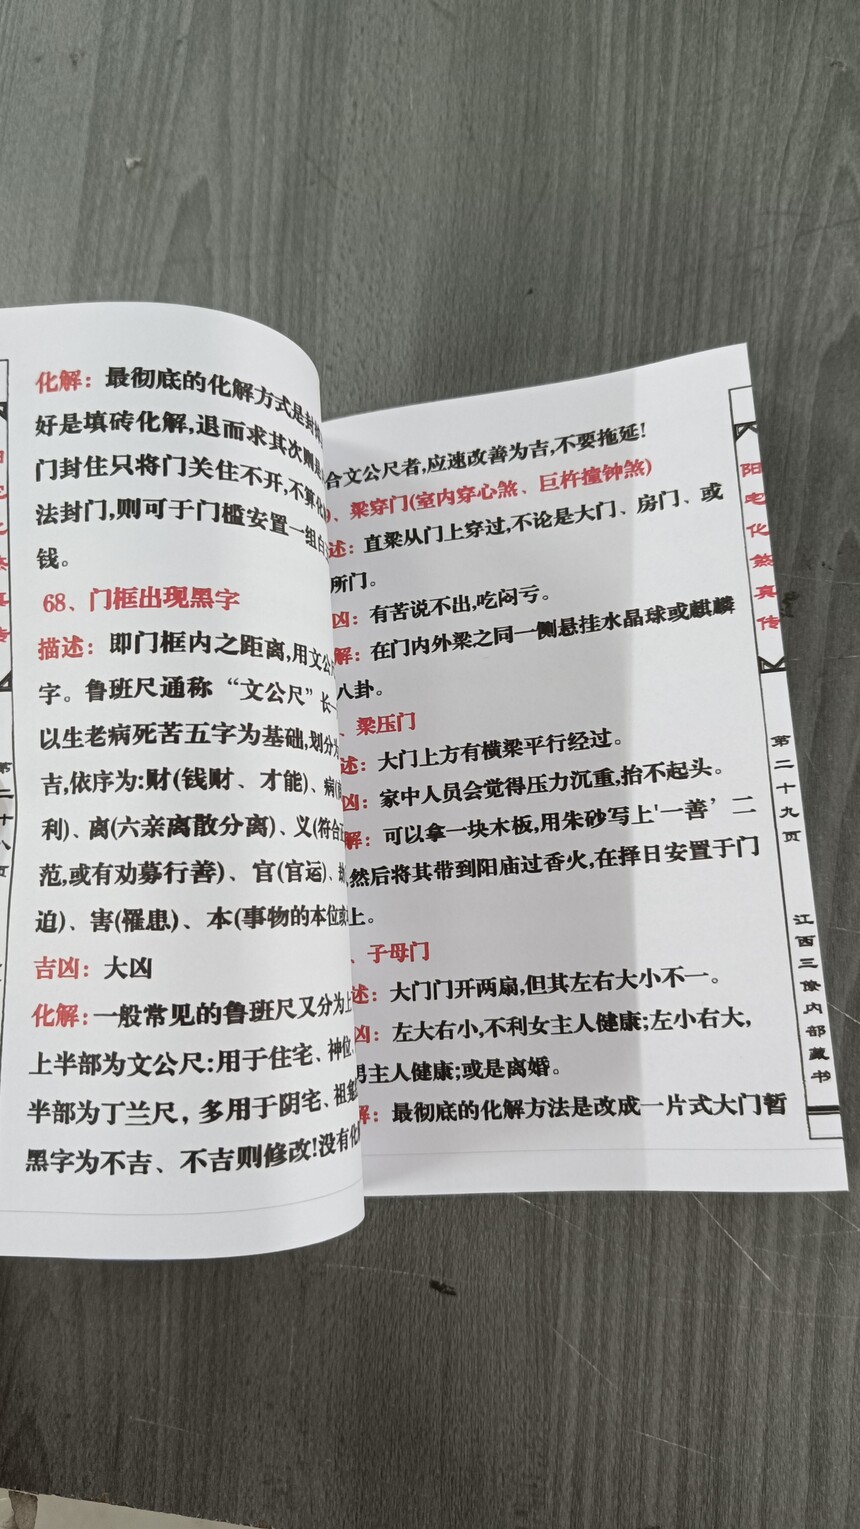 化解：最彻底的化解方式是封
好是填砖化解,退而求其次则
门封住只将门关住不开,不算
法封门,则可于门槛安置一组
钱。
68、门框出现黑字
描述：即门框内之距离,用文公
字。鲁班尺通称“文公尺”长
以生老病死苦五字为基础,划分
吉,依序为:财(钱财、才能)、病
利)、离(六亲离散分离)、义(符合
范,或有劝募行善)、官(官运)、
迫)、害(罹患)、本(事物的本位
吉凶：大凶
化解:一般常见的鲁班尺又分为上
上半部为文公尺:用于住宅、神位
半部为丁兰尺，多用于阴宅、祖
黑字为不吉、不吉则修改!没有
第二十八页
合文公尺者,应速改善为吉,不要拖延!
、梁穿门(室内穿心煞、巨杵撞钟煞)
述：直梁从门上穿过,不论是大门、房门、或
所门。
凶：有苦说不出,吃闷亏。
解：在门内外梁之同一侧悬挂水晶球或麒麟
八卦。
、梁压门
述：大门上方有横梁平行经过。
凶：家中人员会觉得压力沉重,抬不起头。
解：可以拿一块木板,用朱砂写上'一善’二
,然后将其带到阳庙过香火,在择日安置于门
上。
、子母门
述：大门门开两扇,但其左右大小不一。
凶：左大右小,不利女主人健康;左小右大,
男主人健康;或是离婚。
解：最彻底的化解方法是改成一片式大门暂
阳宅化煞真传
第二十九页
江西三僚内部藏书